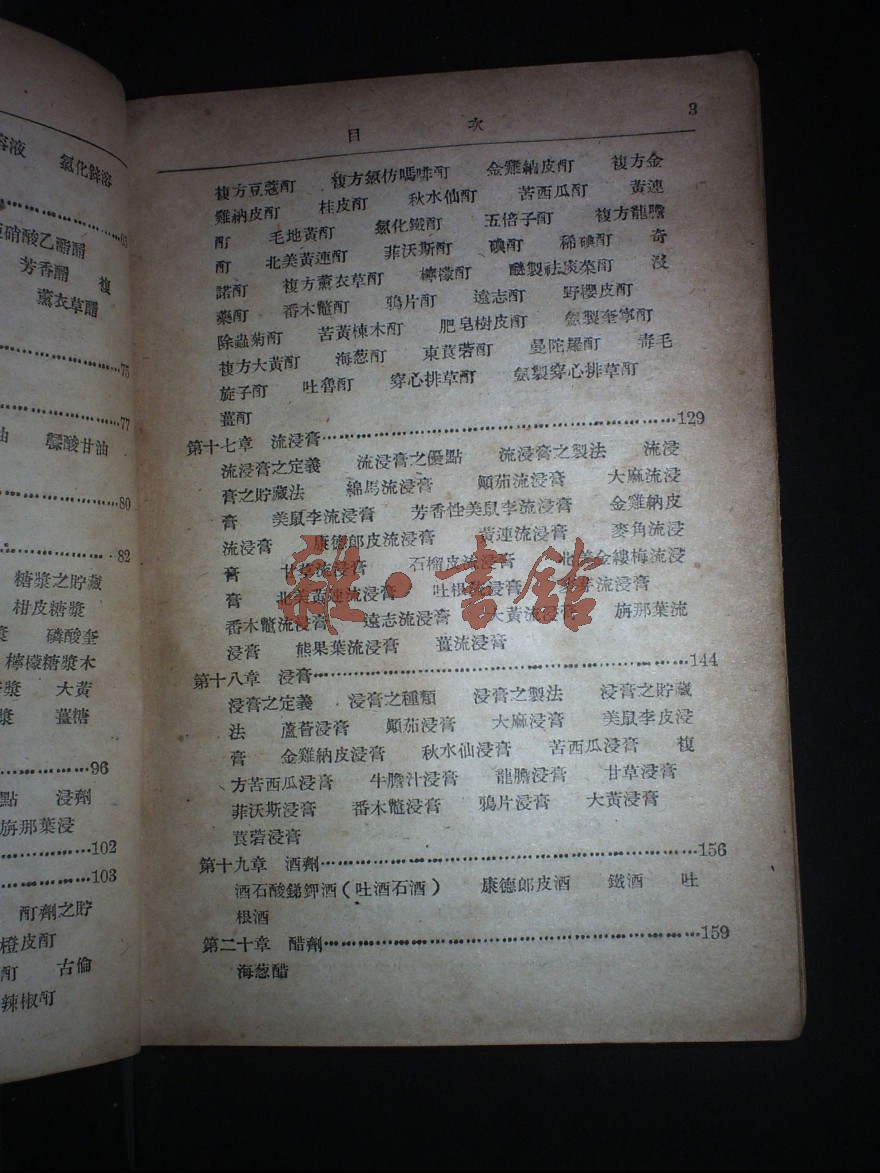 溶液 氯化鋅溶
亞硝酸乙酯醑
芳香醑 複
薰衣草醑
75
77
油 鞣酸甘油
80
82
糖漿之貯藏
柑皮糖漿
漿 磷酸奎
檸檬糖漿木
漿 大黃
漿 薑糖
96
點 浸劑
旃那葉浸
102
103
酊劑之貯
橙皮酊
酊 古倫
辣椒酊
目 次 3
複方豆蔻酊 複方氯仿嗎啡酊 金雞納皮酊 複方金
雞納皮酊 桂皮酊 秋水仙酊 苦西瓜酊 黃連
酊 毛地黃酊 氯化鐵酊 五倍子酊 複方龍膽
酊 北美黃連酊 菲沃斯酊 碘酊 稀碘酊 奇
諾酊 複方薰衣草酊 檸檬酊 醚製祛痰菜酊 沒
藥酊 番木鼈酊 鴉片酊 遠志酊 野櫻皮酊
除蟲菊酊 苦黃楝木酊 肥皂樹皮酊 氨製奎寧酊
複方大黃酊 海葱酊 東莨菪酊 曼陀羅酊 毒毛
旋子酊 吐魯酊 穿心排草酊 氨製穿心排草酊
薑酊
第十七章 流浸膏……129
流浸膏之定義 流浸膏之優點 流浸膏之製法 流浸
膏之貯藏法 綿馬流浸膏 顛茄流浸膏 大麻流浸
膏 美鼠李流浸膏 芳香性美鼠李流浸膏 金雞納皮
流浸膏 康德郎皮流浸膏 黃連流浸膏 麥角流浸
膏 甘草流浸膏 石榴皮流浸膏 北美金縷梅流浸
膏 北美黃連流浸膏 吐根流浸膏 麥芽流浸膏
番木鼈流浸膏 遠志流浸膏 大黃流浸膏 旃那葉流
浸膏 熊果葉流浸膏 薑流浸膏
第十八章 浸膏……144
浸膏之定義 浸膏之種類 浸膏之製法 浸膏之貯藏
法 蘆薈浸膏 顛茄浸膏 大麻浸膏 美鼠李皮浸
膏 金雞納皮浸膏 秋水仙浸膏 苦西瓜浸膏 複
方苦西瓜浸膏 牛膽汁浸膏 龍膽浸膏 甘草浸膏
菲沃斯浸膏 番木鼈浸膏 鴉片浸膏 大黃浸膏
莨菪浸膏
第十九章 酒劑……156
酒石酸銻鉀酒(吐酒石酒) 康德郎皮酒 鐵酒 吐
根酒
第二十章 醋劑……159
海葱醋
雜·書館